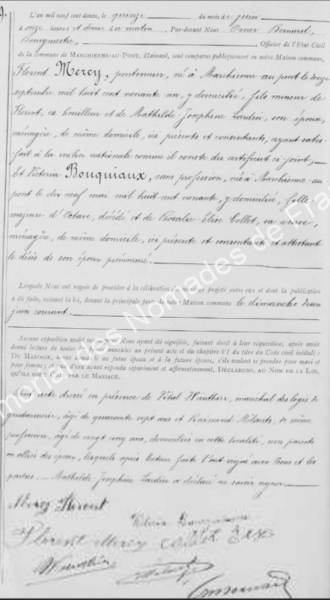 L'an mil neuf cent douze, le quinze du mois de juin
à onze heures et demie du matin, Par-devant Nous Omer Bernard,
Bourgmestre, Officier de l'État Civil
de la Commune de MARCHIENNE-AU-PONT, Hainaut, sont comparus publiquement en notre Maison commune,
Florent Mercy, pontonnier, né à Marchienne au pont le douze
septembre mil huit cent nonante un, y domicilié, fils mineur de
Florent, ex houilleur et de Mathilde Joséphine Lardin, son épouse,
ménagère, de même domicile, ici présents et consentants, ayant satis-
fait à la milice nationale comme il conste du certificat ci joint,
Et Victoria Bouquiaux, sans profession, née à Marchienne au
pont le dix neuf mai mil huit cent nonante, y domiciliée, fille
majeure d'Octave, décédé et de Rosalie Elise Collet, sa veuve,
ménagère, de même domicile, ici présente et consentante et attestant
le décès de son époux prénommé.
Lesquels Nous ont requis de procéder à la célébration du mariage projeté entre eux et dont la publication
a été faite, suivant la loi, devant la principale porte de Notre Maison commune le dimanche deux
juin courant.
Aucune opposition audit mariage ne Nous ayant été signifiée, faisant droit à leur réquisition, après avoir
donné lecture de toutes les pièces mentionnées au présent acte et du chapitre VI du titre du Code civil intitulé :
DU MARIAGE, au futur époux et à la future épouse, s'ils veulent se prendre pour mari et
pour femme ; chacun d'eux ayant répondu séparément et affirmativement, DÉCLARONS, AU NOM DE LA LOI,
QU'ILS SONT UNIS PAR LE MARIAGE.
dont acte dressé en présence de Vital Hauthier, maréchal des logis de
gendarmerie, âgé de quarante sept ans et Raimond, de même
profession, âgé de vingt cinq ans, domiciliés en cette localité, non parents
ni alliés des époux, lesquels après lecture faite l'ont signé avec Nous et les
parties. Mathilde Joséphine Lardin a déclaré ne savoir signer.
Mercy Florent
Bouquiaux
Florent Mercy Collet Elise
Mémorial des Nomades de France